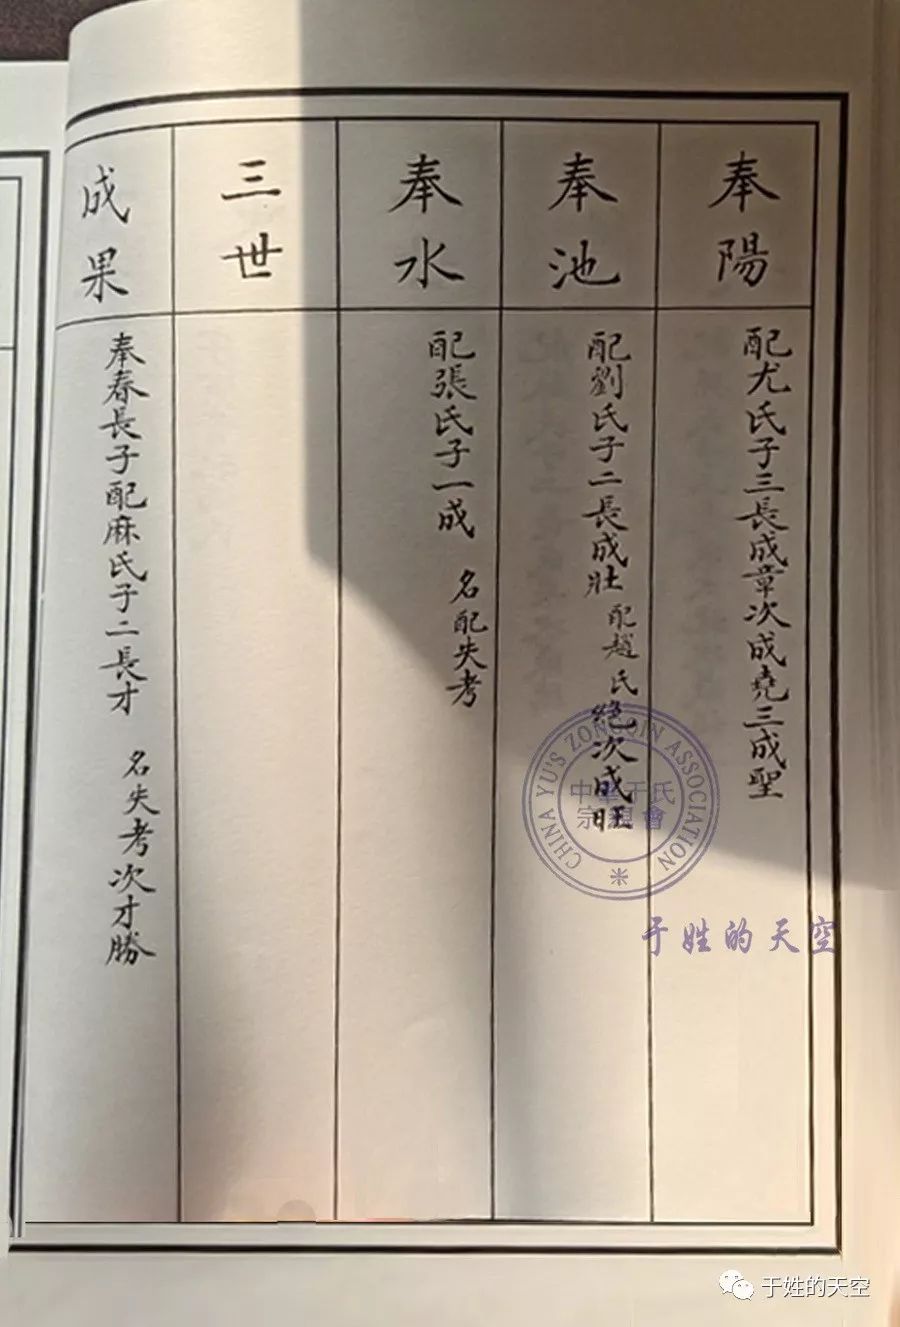 奉陽
配尤氏子三長成章次成堯三成聖
奉池
配劉氏子二長成壯 配趙氏 絕次成旺
奉水
配張氏子一成 名配失考
三世
成果
奉春長子配麻氏子二長才 名失考次才勝
CHINA YU'S ZONGQIN ASSOCIATION
中華于氏
宗親會
于姓的天空
于姓的天空